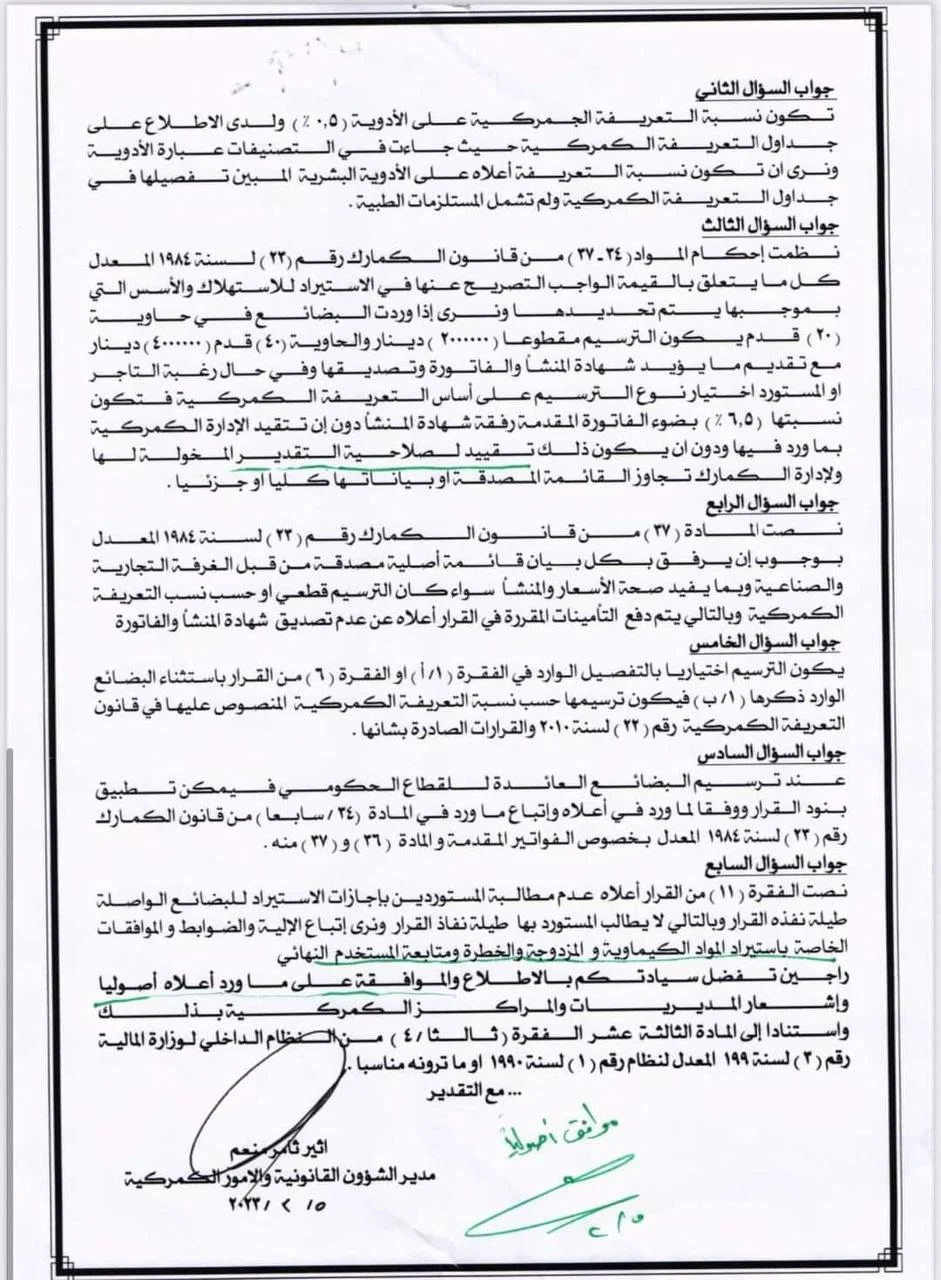 جواب السؤال الثاني
تكون نسبة التعريفة الجمركية على الأدوية (٠,٥ ٪) ولدى الاطلاع على
جداول التعريفة الكمركية حيث جاءت في التصنيفات عبارة الأدوية
ونرى ان تكون نسبة التعريفة أعلاه على الأدوية البشرية المبين تفصيلها في
جداول التعريفة الكمركية ولم تشمل المستلزمات الطبية .
جواب السؤال الثالث
نظمت إحكام المواد (٣٤-٣٧) من قانون الكمارك رقم (٢٣) لسنة ١٩٨٤ المعدل
كل ما يتعلق بالقيمة الواجب التصريح عنها في الاستيراد للاستهلاك والأسس التي
بموجبها يتم تحديدها ونرى إذا وردت البضائع في حاوية
(٢٠) قدم يكون الترسيم مقطوعا (٢٠٠٠٠٠٠) دينار والحاوية (٤٠) قدم (٤٠٠٠٠٠٠) دينار
مع تقديم ما يؤيد شهادة المنشأ والفاتورة وتصديقها وفي حال رغبة التاجر
او المستورد اختيار نوع الترسيم على أساس التعريفة الكمركية فتكون
نسبتها (٦,٥ ٪) بضوء الفاتورة المقدمة رفقة شهادة المنشأ دون إن تتقيد الإدارة الكمركية
بما ورد فيها ودون ان يكون ذلك تقييد لصلاحية التقدير المخولة لها
ولإدارة الكمارك تجاوز القائمة المصدقة او بياناتها كليا او جزئيا .
جواب السؤال الرابع
نصت المادة (٣٧) من قانون الكمارك رقم (٢٣) لسنة ١٩٨٤ المعدل
بوجوب إن يرفق بكل بيان قائمة أصلية مصدقة من قبل الغرفة التجارية
والصناعية وبما يفيد صحة الأسعار والمنشأ سواء كان الترسيم قطعي او حسب نسب التعريفة
الكمركية وبالتالي يتم دفع التأمينات المقررة في القرار أعلاه عن عدم تصديق شهادة المنشأ والفاتورة
جواب السؤال الخامس
يكون الترسيم اختياريا بالتفصيل الوارد في الفقرة (١/أ) او الفقرة (٦) من القرار باستثناء البضائع
الوارد ذكرها (١/ب) فيكون ترسيمها حسب نسبة التعريفة الكمركية المنصوص عليها في قانون
التعريفة الكمركية رقم (٢٢) لسنة ٢٠١٠ والقرارات الصادرة بشانها .
جواب السؤال السادس
عند ترسيم البضائع العائدة للقطاع الحكومي فيمكن تطبيق
بنود القرار ووفقا لما ورد في أعلاه وإتباع ما ورد في المادة (٣٤/سابعا) من قانون الكمارك
رقم (٢٣) لسنة ١٩٨٤ المعدل بخصوص الفواتير المقدمة و المادة (٣٦) و (٣٧) منه .
جواب السؤال السابع
نصت الفقرة (١١) من القرار أعلاه عدم مطالبة المستوردين بإجازات الاستيراد للبضائع الواصلة
طيلة نفذه القرار وبالتالي لا يطالب المستورد بها طيلة نفاذ القرار ونرى إتباع الإلية والضوابط و الموافقات
الخاصة باستيراد المواد الكيماوية و المزدوجة والخطرة ومتابعة المستخدم النهائي
راجين تفضل سيادتكم بالاطلاع والموافقة على ما ورد أعلاه أصوليا
وإشعار المديريات والمراكز الكمركية بذلك
واستنادا إلى المادة الثالثة عشر الفقرة (ثالثا/٤) من النظام الداخلي لوزارة المالية
رقم (٢) لسنة ١٩٩ المعدل لنظام رقم (١) لسنة ١٩٩٠ او ما ترونه مناسبا .
... مع التقدير
موافق اصوليا
٢/٥
اثير ثامر منعم
مدير الشؤون القانونية والامور الكمركية
٢٠٢٣/ ٢ /٥